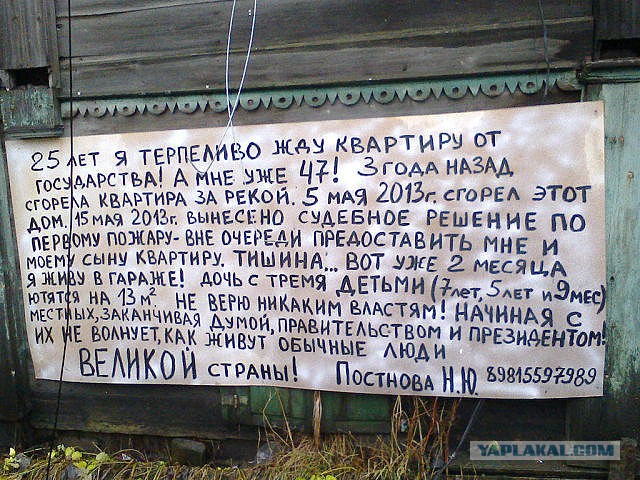 25 ЛЕТ Я ТЕРПЕЛИВО ЖДУ КВАРТИРУ ОТ
ГОСУДАРСТВА! А МНЕ УЖЕ 47! 3 ГОДА НАЗАД,
СГОРЕЛА КВАРТИРА ЗА РЕКОЙ. 5 МАЯ 2013г. СГОРЕЛ ЭТОТ
ДОМ. 15 МАЯ 2013г. ВЫНЕСЕНО СУДЕБНОЕ РЕШЕНИЕ ПО
ПЕРВОМУ ПОЖАРУ- ВНЕ ОЧЕРЕДИ ПРЕДОСТАВИТЬ МНЕ И
МОЕМУ СЫНУ КВАРТИРУ. ТИШИНА... ВОТ УЖЕ 2 МЕСЯЦА
Я ЖИВУ В ГАРАЖЕ! ДОЧЬ С ТРЕМЯ ДЕТЬМИ (7лет, 5 лет и 9 мес)
ЮТЯТСЯ НА 13 м² НЕ ВЕРЮ НИКАКИМ ВЛАСТЯМ! НАЧИНАЯ С
МЕСТНЫХ, ЗАКАНЧИВАЯ ДУМОЙ, ПРАВИТЕЛЬСТВОМ И ПРЕЗИДЕНТОМ!
ИХ НЕ ВОЛНУЕТ, КАК ЖИВУТ ОБЫЧНЫЕ ЛЮДИ
ВЕЛИКОЙ СТРАНЫ! ПОСТНОВА Н.Ю. 89815597989
YAPLAKAL.COM